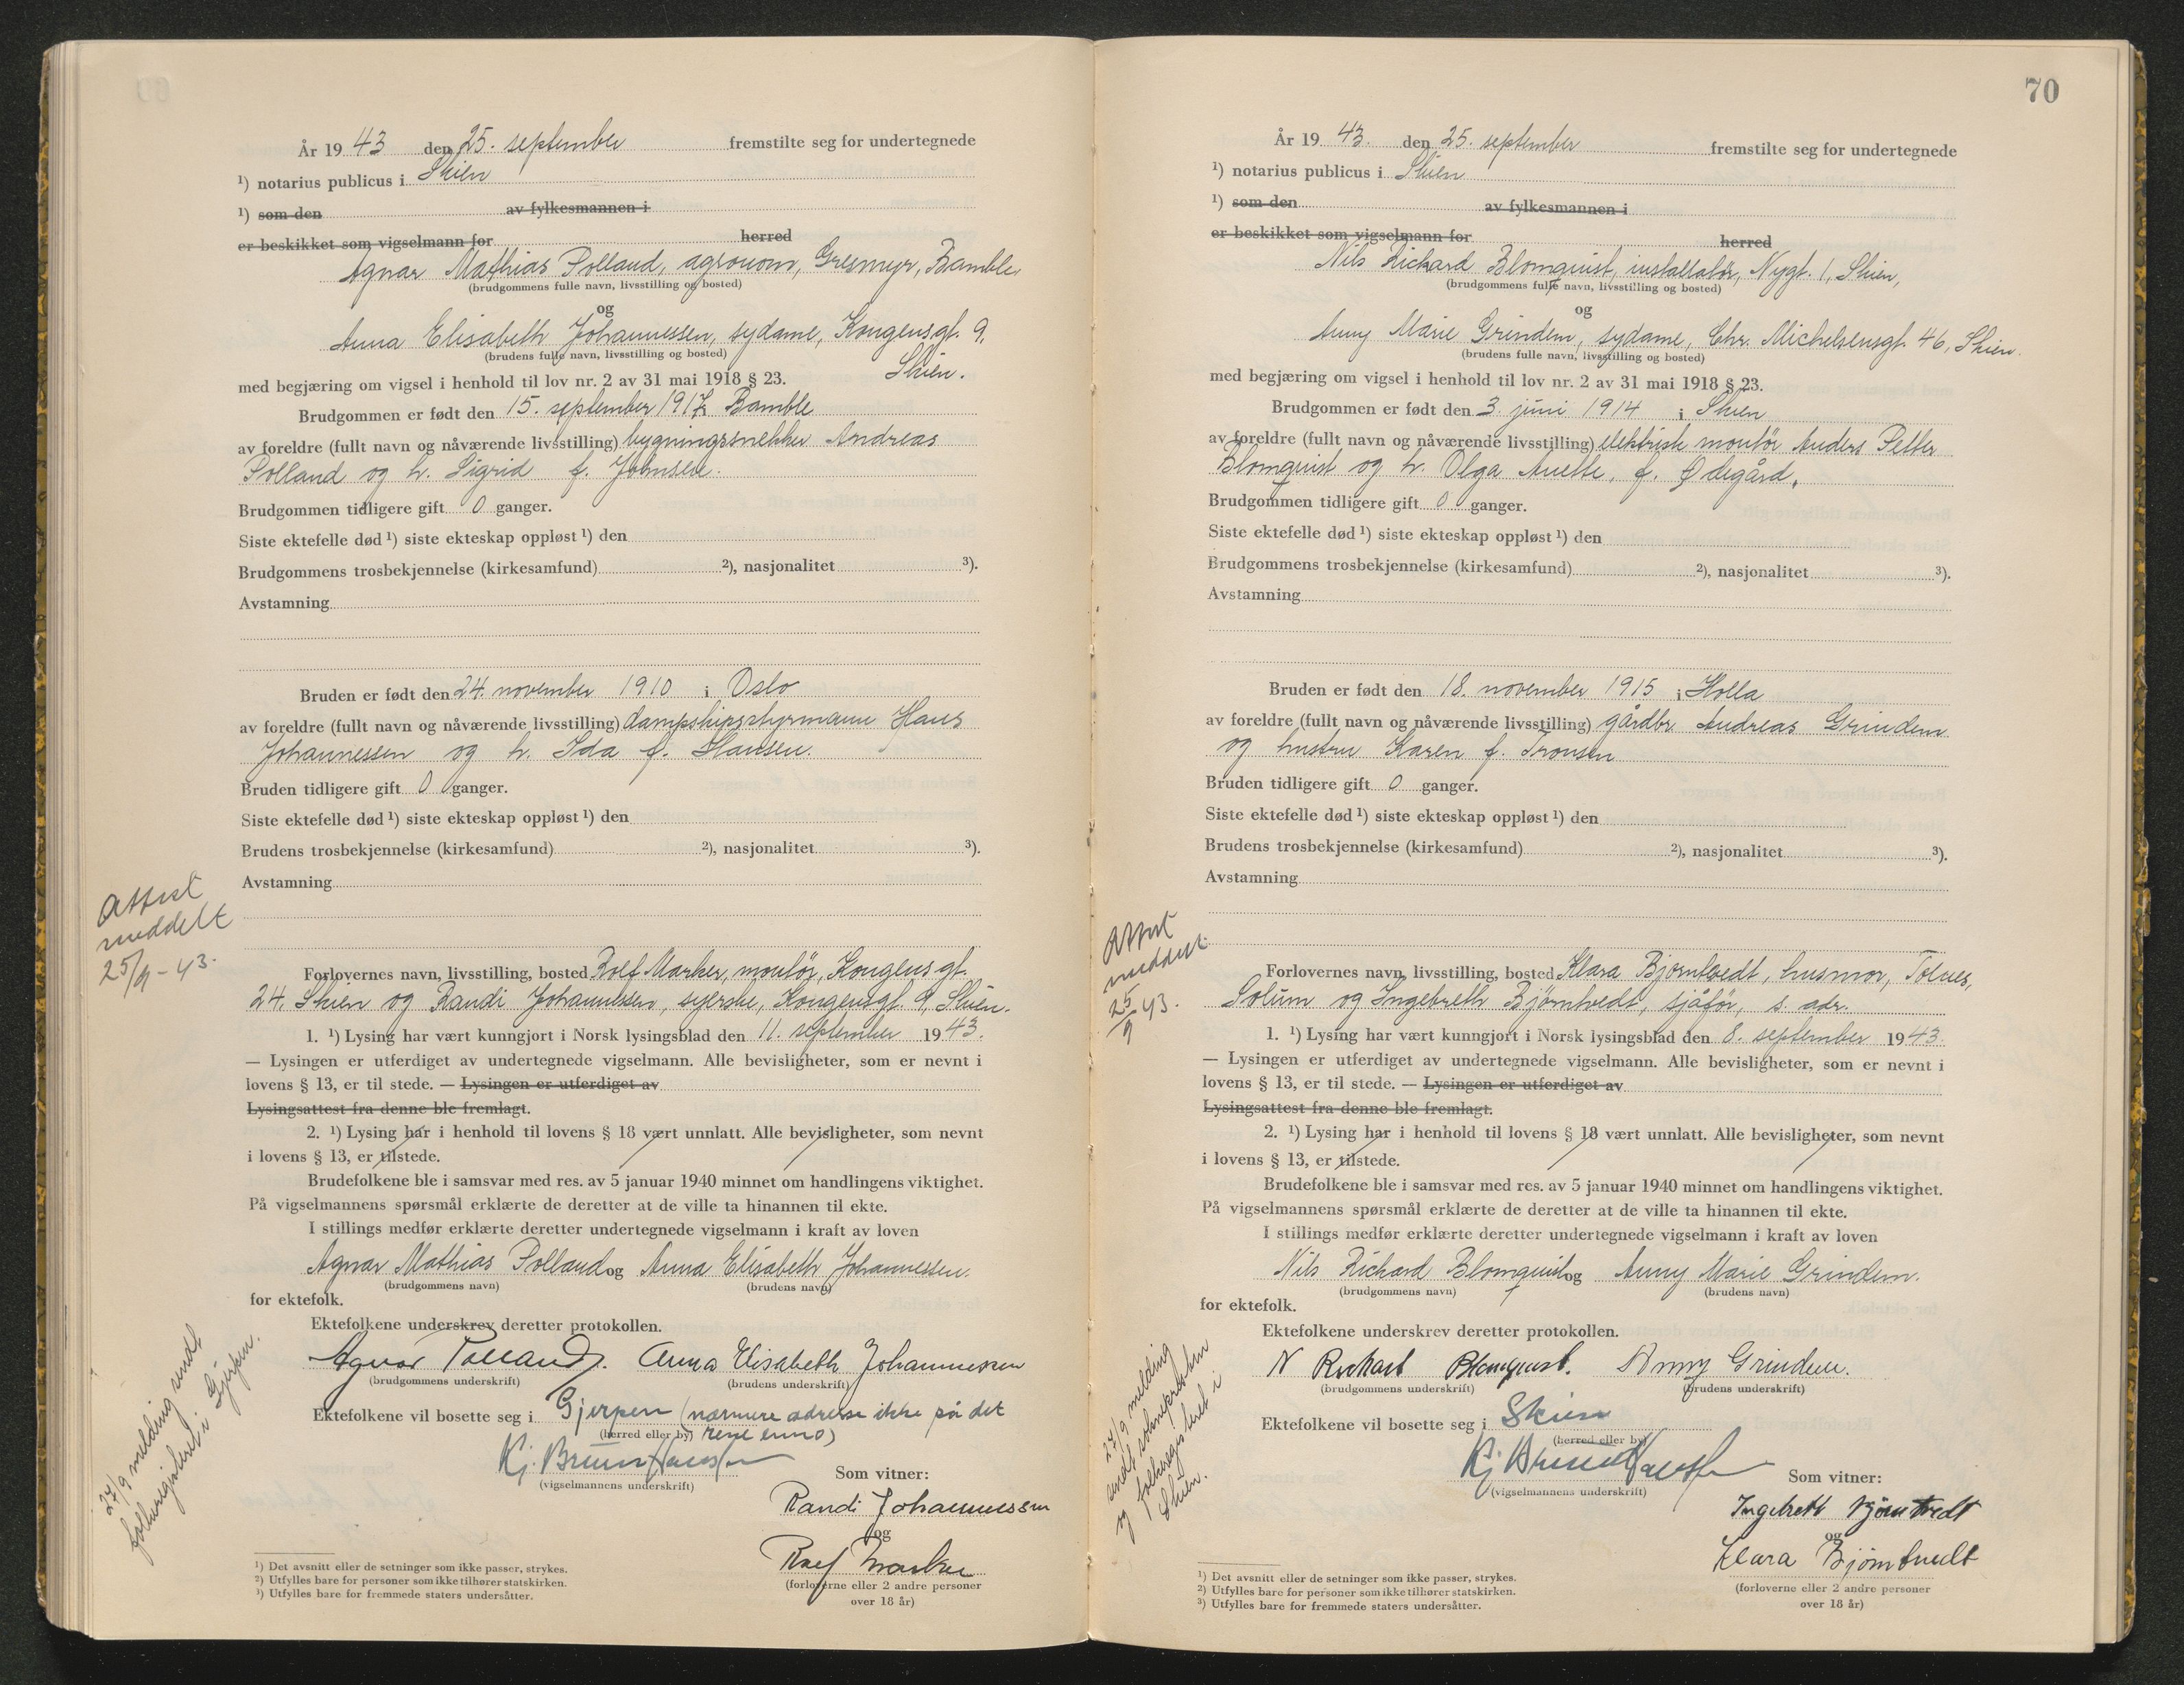 År 19 43 den 25. september fremstilte seg for undertegnede
¹) notarius publicus i Skien
¹) som den av fylkesmannen i
er beskikket som vigselmann for herred
Agnar Mathias Polland, agronom, Gresmyr, Bamble
(brudgommens fulle navn, livsstilling og bosted)
og
Anna Elisabeth Johannessen, sydame, Kongensgt. 9,
(brudens fulle navn, livsstilling og bosted)
Skien.
med begjæring om vigsel i henhold til lov nr. 2 av 31 mai 1918 § 23.
Brudgommen er født den 15. september 1917 i Bamble
av foreldre (fullt navn og nåværende livsstilling) bygningssnekker Andreas
Polland og h. Sigrid f. Johnsen.
Brudgommen tidligere gift 0 ganger.
Siste ektefelle død ¹) siste ekteskap oppløst ¹) den
Brudgommens trosbekjennelse (kirkesamfund) ²), nasjonalitet ³).
Avstamning
Bruden er født den 24. november 1910 i Oslo
av foreldre (fullt navn og nåværende livsstilling) dampskipsstyrmann Hans
Johannessen og h. Ida f. Hansen.
Bruden tidligere gift 0 ganger.
Siste ektefelle død ¹) siste ekteskap oppløst ¹) den
Brudens trosbekjennelse (kirkesamfund) ²), nasjonalitet ³).
Avstamning
Attest
meddelt
25/9-43.
Forlovernes navn, livsstilling, bosted Rolf Marker, montör, Kongensgt.
24. Skien og Randi Johannessen, syerske, Kongensgt. 9, Skien.
1. ¹) Lysing har vært kunngjort i Norsk lysingsblad den 11. september 1943.
— Lysingen er utferdiget av undertegnede vigselmann. Alle bevisligheter, som er nevnt i
lovens § 13, er til stede. — Lysingen er utferdiget av
Lysingsattest fra denne ble fremlagt.
2. ¹) Lysing har i henhold til lovens § 18 vært unnlatt. Alle bevisligheter, som nevnt
i lovens § 13, er tilstede.
Brudefolkene ble i samsvar med res. av 5 januar 1940 minnet om handlingens viktighet.
På vigselmannens spørsmål erklærte de deretter at de ville ta hinannen til ekte.
I stillings medfør erklærte deretter undertegnede vigselmann i kraft av loven
Agnar Mathias Polland og Anna Elisabeth Johannessen.
(brudgommens navn) (brudens navn)
for ektefolk.
Ektefolkene underskrev deretter protokollen.
Agnar Polland. Anna Elisabeth Johannessen
(brudgommens underskrift) (brudens underskrift)
Ektefolkene vil bosette seg i Gjerpen (nærmere adresse ikke på det
(herred eller by) rene ennå)
Kj. Bruun Hansen
(vigselmannens underskrift)
Som vitner:
Randi Johannessen
og
Rolf Marker
(forloverne eller 2 andre personer
over 18 år)
27/9 melding sendt
folkeregisteret i Gjerpen.
¹) Det avsnitt eller de setninger som ikke passer, strykes.
²) Utfylles bare for personer som ikke tilhører statskirken.
³) Utfylles bare for fremmede staters undersåtter.
70
År 19 43. den 25. september fremstilte seg for undertegnede
¹) notarius publicus i Skien
¹) som den av fylkesmannen i
er beskikket som vigselmann for herred
Nils Rickard Blomquist, installatör, Nygt. 1, Skien,
(brudgommens fulle navn, livsstilling og bosted)
og
Anny Marie Grindem, sydame, Chr. Michelsensgt. 46, Skien.
(brudens fulle navn, livsstilling og bosted)
med begjæring om vigsel i henhold til lov nr. 2 av 31 mai 1918 § 23.
Brudgommen er født den 3. juni 1914 i Skien
av foreldre (fullt navn og nåværende livsstilling) elektrisk montör Anders Petter
Blomquist og h. Olga Anette, f. Ødegård.
Brudgommen tidligere gift 0 ganger.
Siste ektefelle død ¹) siste ekteskap oppløst ¹) den
Brudgommens trosbekjennelse (kirkesamfund) ²), nasjonalitet ³).
Avstamning
Bruden er født den 18. november 1915 i Holla
av foreldre (fullt navn og nåværende livsstilling) gårdbr. Andreas Grindem
og hustru Karen f. Tronsen
Bruden tidligere gift 0 ganger.
Siste ektefelle død ¹) siste ekteskap oppløst ¹) den
Brudens trosbekjennelse (kirkesamfund) ²), nasjonalitet ³).
Avstamning
Attest
meddelt
25/9 43.
Forlovernes navn, livsstilling, bosted Klara Bjørntvedt, husmor, Tolnes,
Solum og Ingebreth Bjørntvedt, sjåför, s. adr.
1. ¹) Lysing har vært kunngjort i Norsk lysingsblad den 8. september 1943.
— Lysingen er utferdiget av undertegnede vigselmann. Alle bevisligheter, som er nevnt i
lovens § 13, er til stede. — Lysingen er utferdiget av
Lysingsattest fra denne ble fremlagt.
2. ¹) Lysing har i henhold til lovens § 18 vært unnlatt. Alle bevisligheter, som nevnt
i lovens § 13, er tilstede.
Brudefolkene ble i samsvar med res. av 5 januar 1940 minnet om handlingens viktighet.
På vigselmannens spørsmål erklærte de deretter at de ville ta hinannen til ekte.
I stillings medfør erklærte deretter undertegnede vigselmann i kraft av loven
Nils Rickard Blomquist og Anny Marie Grindem.
(brudgommens navn) (brudens navn)
for ektefolk.
Ektefolkene underskrev deretter protokollen.
N Rickard Blomquist. Anny Grindem.
(brudgommens underskrift) (brudens underskrift)
Ektefolkene vil bosette seg i Skien
(herred eller by)
Kj Bruun Hansen
(vigselmannens underskrift)
Som vitner:
Ingebreth Bjørntvedt
og
Klara Bjørntvedt
(forloverne eller 2 andre personer
over 18 år)
27/9 melding
sendt soknepresten
og folkeregisteret i
Skien.
¹) Det avsnitt eller de setninger som ikke passer, strykes.
²) Utfylles bare for personer som ikke tilhører statskirken.
³) Utfylles bare for fremmede staters undersåtter.